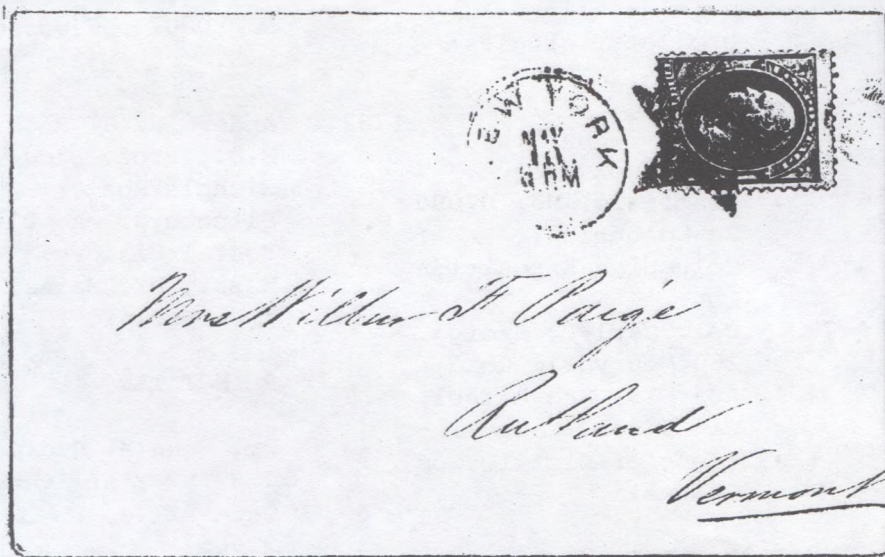 EW YORK
MAY
PM
Mrs Wilbur F Paige
Rutland
Vermont